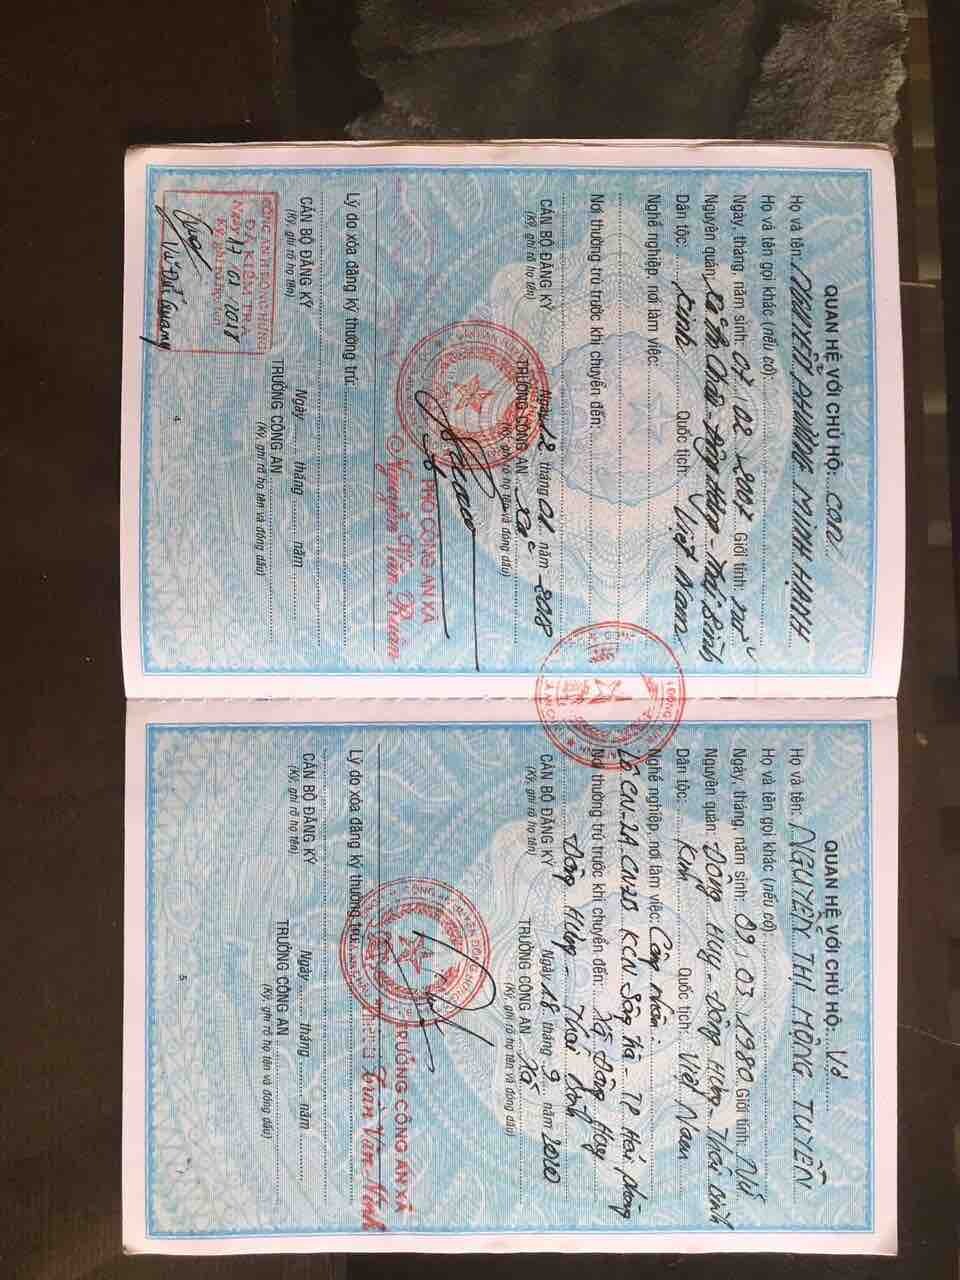 QUAN HỆ VỚI CHỦ HỘ: con
Họ và tên: NGUYỄN PHƯƠNG MINH HẠNH
Họ và tên gọi khác (nếu có):
Ngày, tháng, năm sinh: 07/02/2007 Giới tính: nữ
Nguyên quán: Xã Châu - Đông Hưng - Thái Bình
Dân tộc: Kinh Quốc tịch: Việt Nam
Nghề nghiệp, nơi làm việc:
Nơi thường trú trước khi chuyển đến:
Ngày 12 tháng 01 năm 2018
CÁN BỘ ĐĂNG KÝ TRƯỞNG CÔNG AN xã
(Ký, ghi rõ họ tên) (Ký, ghi rõ họ tên và đóng dấu)
PHÓ CÔNG AN XÃ
Nguyễn Văn Ruân
Lý do xóa đăng ký thường trú:
Ngày tháng năm
CÁN BỘ ĐĂNG KÝ TRƯỞNG CÔNG AN
(Ký, ghi rõ họ tên) (Ký, ghi rõ họ tên và đóng dấu)
CÔNG AN H. ĐÔNG HƯNG
ĐÃ KIỂM TRA
Ngày 17/01/2018
Ký, ghi rõ họ tên
Vũ Đạt Quang
4
QUAN HỆ VỚI CHỦ HỘ: Vợ
Họ và tên: NGUYỄN THỊ HỒNG TUYÊN
Họ và tên gọi khác (nếu có)
Ngày, tháng, năm sinh: 09/03/1980 Giới tính: Nữ
Nguyên quán: Đông Huy - Đông Hưng - Thái Bình
Dân tộc: Kinh Quốc tịch: Việt Nam
Nghề nghiệp, nơi làm việc: Công nhân:
Lô CN-2A.CN2B KCN - TP Hải phòng
Nơi thường trú trước khi chuyển đến: Xã Đông Huy
Đông Hưng - Thái Bình
Ngày 18 tháng 9 năm 2010
CÁN BỘ ĐĂNG KÝ TRƯỞNG CÔNG AN xã
(Ký, ghi rõ họ tên) (Ký, ghi rõ họ tên và đóng dấu)
TRƯỞNG CÔNG AN XÃ
Trần Văn Ninh
Lý do xóa đăng ký thường trú:
Ngày tháng năm
CÁN BỘ ĐĂNG KÝ TRƯỞNG CÔNG AN
(Ký, ghi rõ họ tên) (Ký, ghi rõ họ tên và đóng dấu)
5